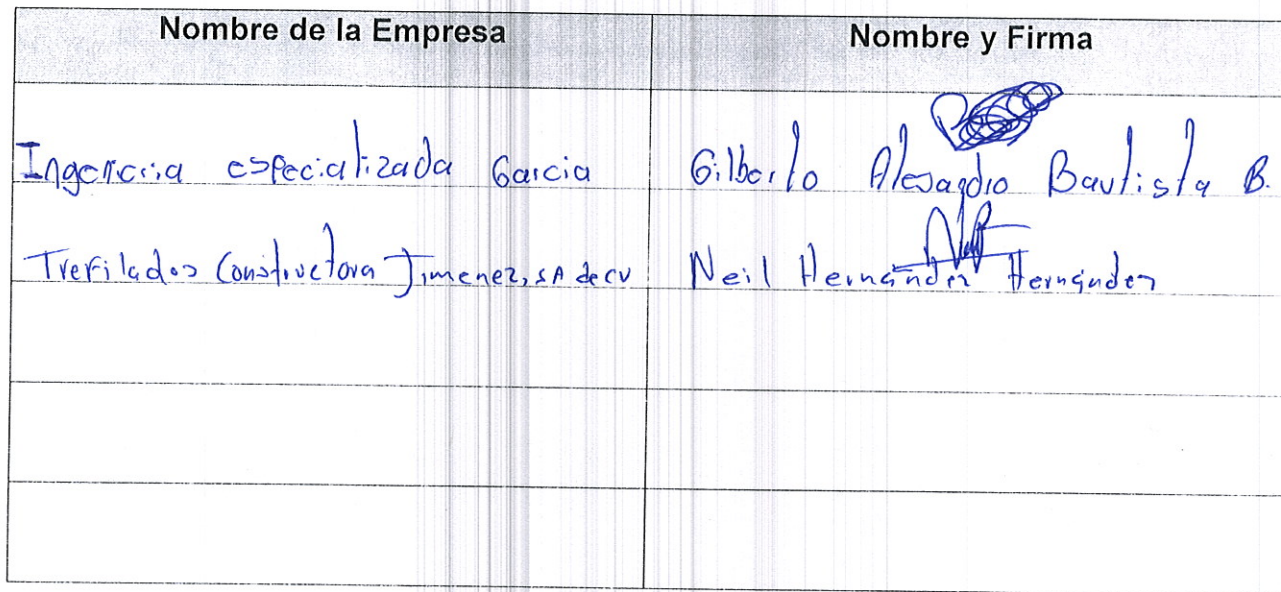 Nombre de la Empresa Nombre y Firma
Ingenieria especializada Garcia Gilberto Alejandro Bautista B.
Trefilados Constructora Jimenez, SA de CV Neil Hernández Hernández